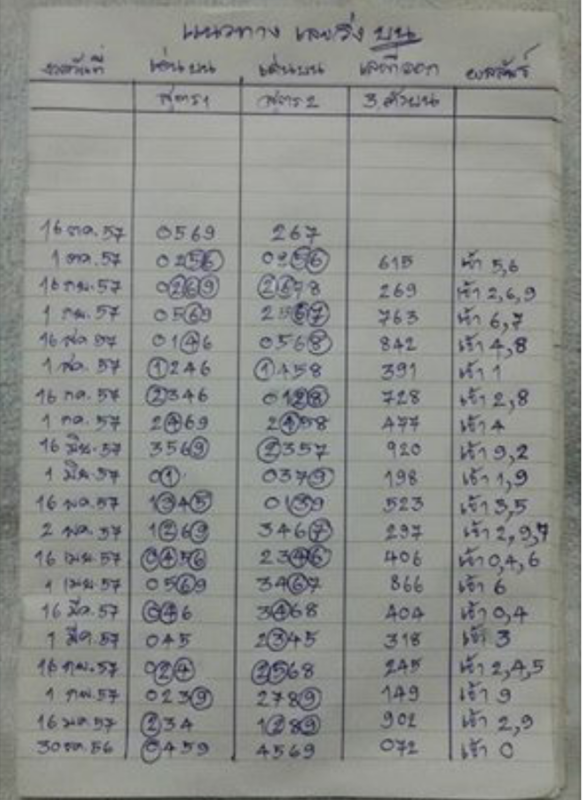 แนวทาง เลขวิ่ง บน
งวดวันที่ เด่นบน เด่นบน เลขที่ออก ผลลัพธ์
สูตร1 สูตร2 3ตัวบน
16 ตค.57 0569 267
1 ตค.57 0256 0256 615 เข้า 5,6
16 กย.57 0269 2678 269 เข้า 2,6,9
1 กย.57 0569 2567 763 เข้า 6,7
16 สค.57 0146 0568 842 เข้า 4,8
1 สค.57 1246 1458 391 เข้า 1
16 กค.57 2346 0128 728 เข้า 2,8
1 กค.57 2469 2458 477 เข้า 4
16 มิย.57 3569 2357 920 เข้า 9,2
1 มิย.57 01 0379 198 เข้า 1,9
16 พค.57 1345 0139 523 เข้า 3,5
2 พค.57 1269 3467 297 เข้า 2,9,7
16 เมย.57 0456 2346 406 เข้า 0,4,6
1 เมย.57 0569 3467 866 เข้า 6
16 มีค.57 046 3468 404 เข้า 0,4
1 มีค.57 045 2345 318 เข้า 3
16 กพ.57 024 2568 245 เข้า 2,4,5
1 กพ.57 0239 2789 149 เข้า 9
16 มค.57 234 1289 902 เข้า 2,9
30 ธค.56 0459 4569 072 เข้า 0